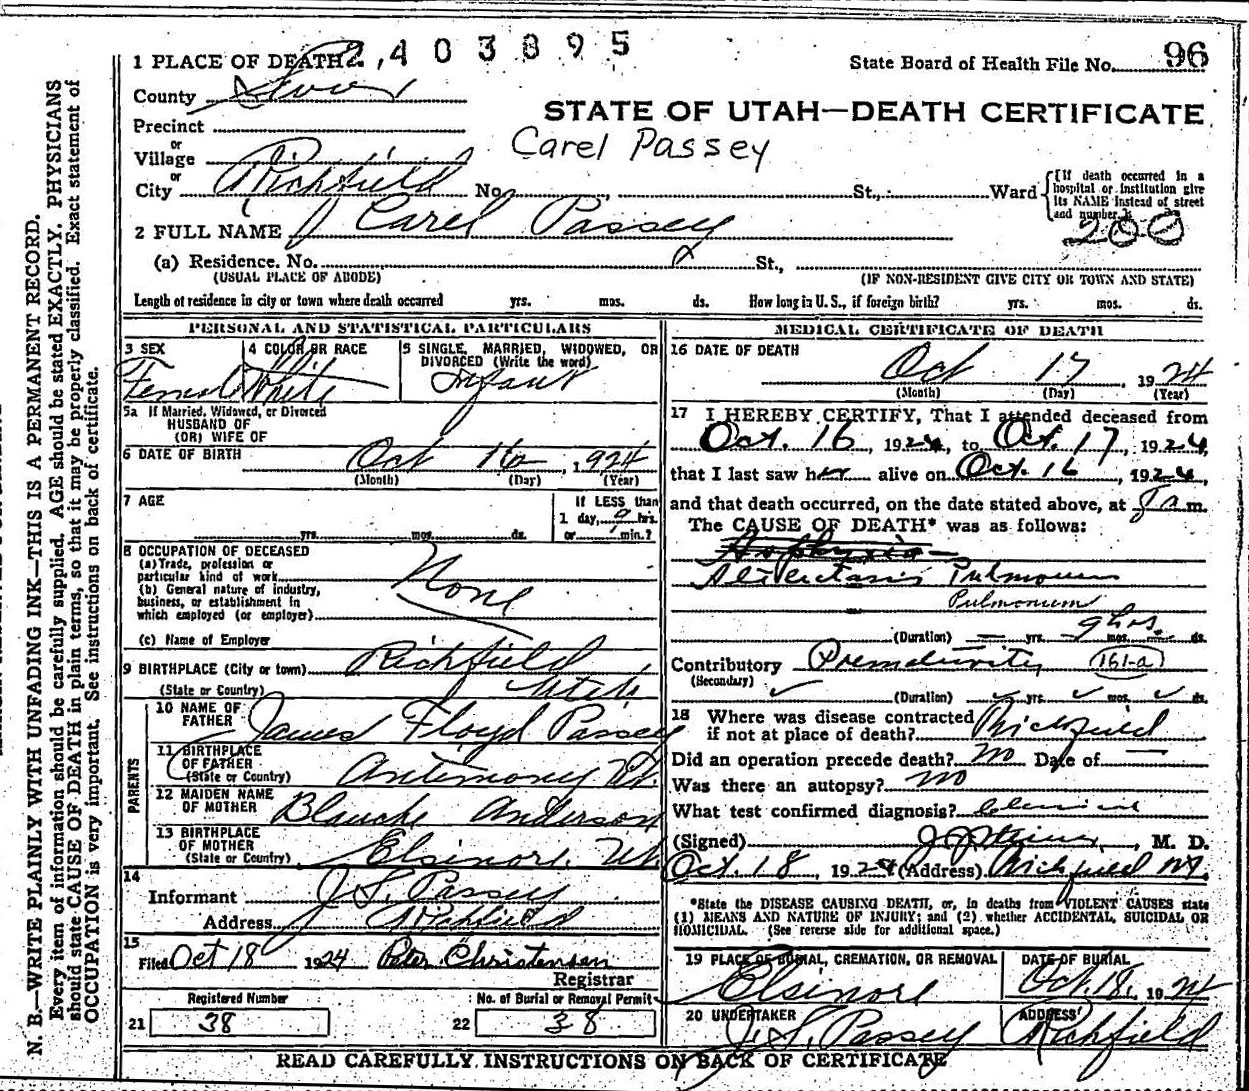 1 PLACE OF DEATH 2,403895
State Board of Health File No. 96
County Sevier
STATE OF UTAH—DEATH CERTIFICATE
Precinct
Carel Passey
or
Village
or
City Richfield No. St., Ward
{If death occurred in a
hospital or institution give
its NAME instead of street
and number.}
200
2 FULL NAME Carel Passey
(a) Residence. No. St.,
(USUAL PLACE OF ABODE) (IF NON-RESIDENT GIVE CITY OR TOWN AND STATE)
Length of residence in city or town where death occurred yrs. mos. ds. How long in U. S., if foreign birth? yrs. mos. ds.
PERSONAL AND STATISTICAL PARTICULARS
3 SEX
Female
4 COLOR OR RACE
White
5 SINGLE, MARRIED, WIDOWED, OR
DIVORCED (Write the word)
Infant
5a If Married, Widowed, or Divorced
HUSBAND OF
(OR) WIFE OF
6 DATE OF BIRTH Oct 16, 1924
(Month) (Day) (Year)
7 AGE
yrs. mos. ds.
If LESS than
1 day, 9 hrs.
or min.?
8 OCCUPATION OF DECEASED
(a) Trade, profession or
particular kind of work
None
(b) General nature of industry,
business, or establishment in
which employed (or employer)
(c) Name of Employer
9 BIRTHPLACE (City or town) Richfield,
(State or Country) Utah
PARENTS
10 NAME OF
FATHER James Floyd Passey
11 BIRTHPLACE
OF FATHER
(State or Country) Antimony Ut.
12 MAIDEN NAME
OF MOTHER Blanche Anderson
13 BIRTHPLACE
OF MOTHER
(State or Country) Elsinore, Ut
14
Informant J. S. Passey
Address Richfield
15
Filed Oct 18 1924 Peter Christensen
Registrar
Registered Number
21 38
No. of Burial or Removal Permit
22 38
MEDICAL CERTIFICATE OF DEATH
16 DATE OF DEATH
Oct 17, 1924
(Month) (Day) (Year)
17 I HEREBY CERTIFY, That I attended deceased from
Oct. 16, 1924, to Oct. 17, 1924,
that I last saw her alive on Oct. 16, 1924,
and that death occurred, on the date stated above, at 8 a m.
The CAUSE OF DEATH* was as follows:
Asphyxia
Atelectasis Pulmonum
Pulmonum
9 hrs.
(Duration) — yrs. mos. ds.
Contributory Prematurity 161-a
(Secondary)
(Duration) yrs. mos. ds.
18 Where was disease contracted
if not at place of death? Richfield
Did an operation precede death? no Date of —
Was there an autopsy? no
What test confirmed diagnosis? Clinical
(Signed) M. D.
Oct. 18, 1924 (Address) Richfield Ut.
*State the DISEASE CAUSING DEATH, or, in deaths from VIOLENT CAUSES state
(1) MEANS AND NATURE OF INJURY; and (2) whether ACCIDENTAL, SUICIDAL OR
HOMICIDAL. (See reverse side for additional space.)
19 PLACE OF BURIAL, CREMATION, OR REMOVAL
Elsinore
DATE OF BURIAL
Oct. 18, 1924
20 UNDERTAKER
J. S. Passey
ADDRESS
Richfield
READ CAREFULLY INSTRUCTIONS ON BACK OF CERTIFICATE
N. B.—WRITE PLAINLY WITH UNFADING INK—THIS IS A PERMANENT RECORD.
Every item of information should be carefully supplied. AGE should be stated EXACTLY. PHYSICIANS
should state CAUSE OF DEATH in plain terms, so that it may be properly classified. Exact statement of
OCCUPATION is very important. See instructions on back of certificate.